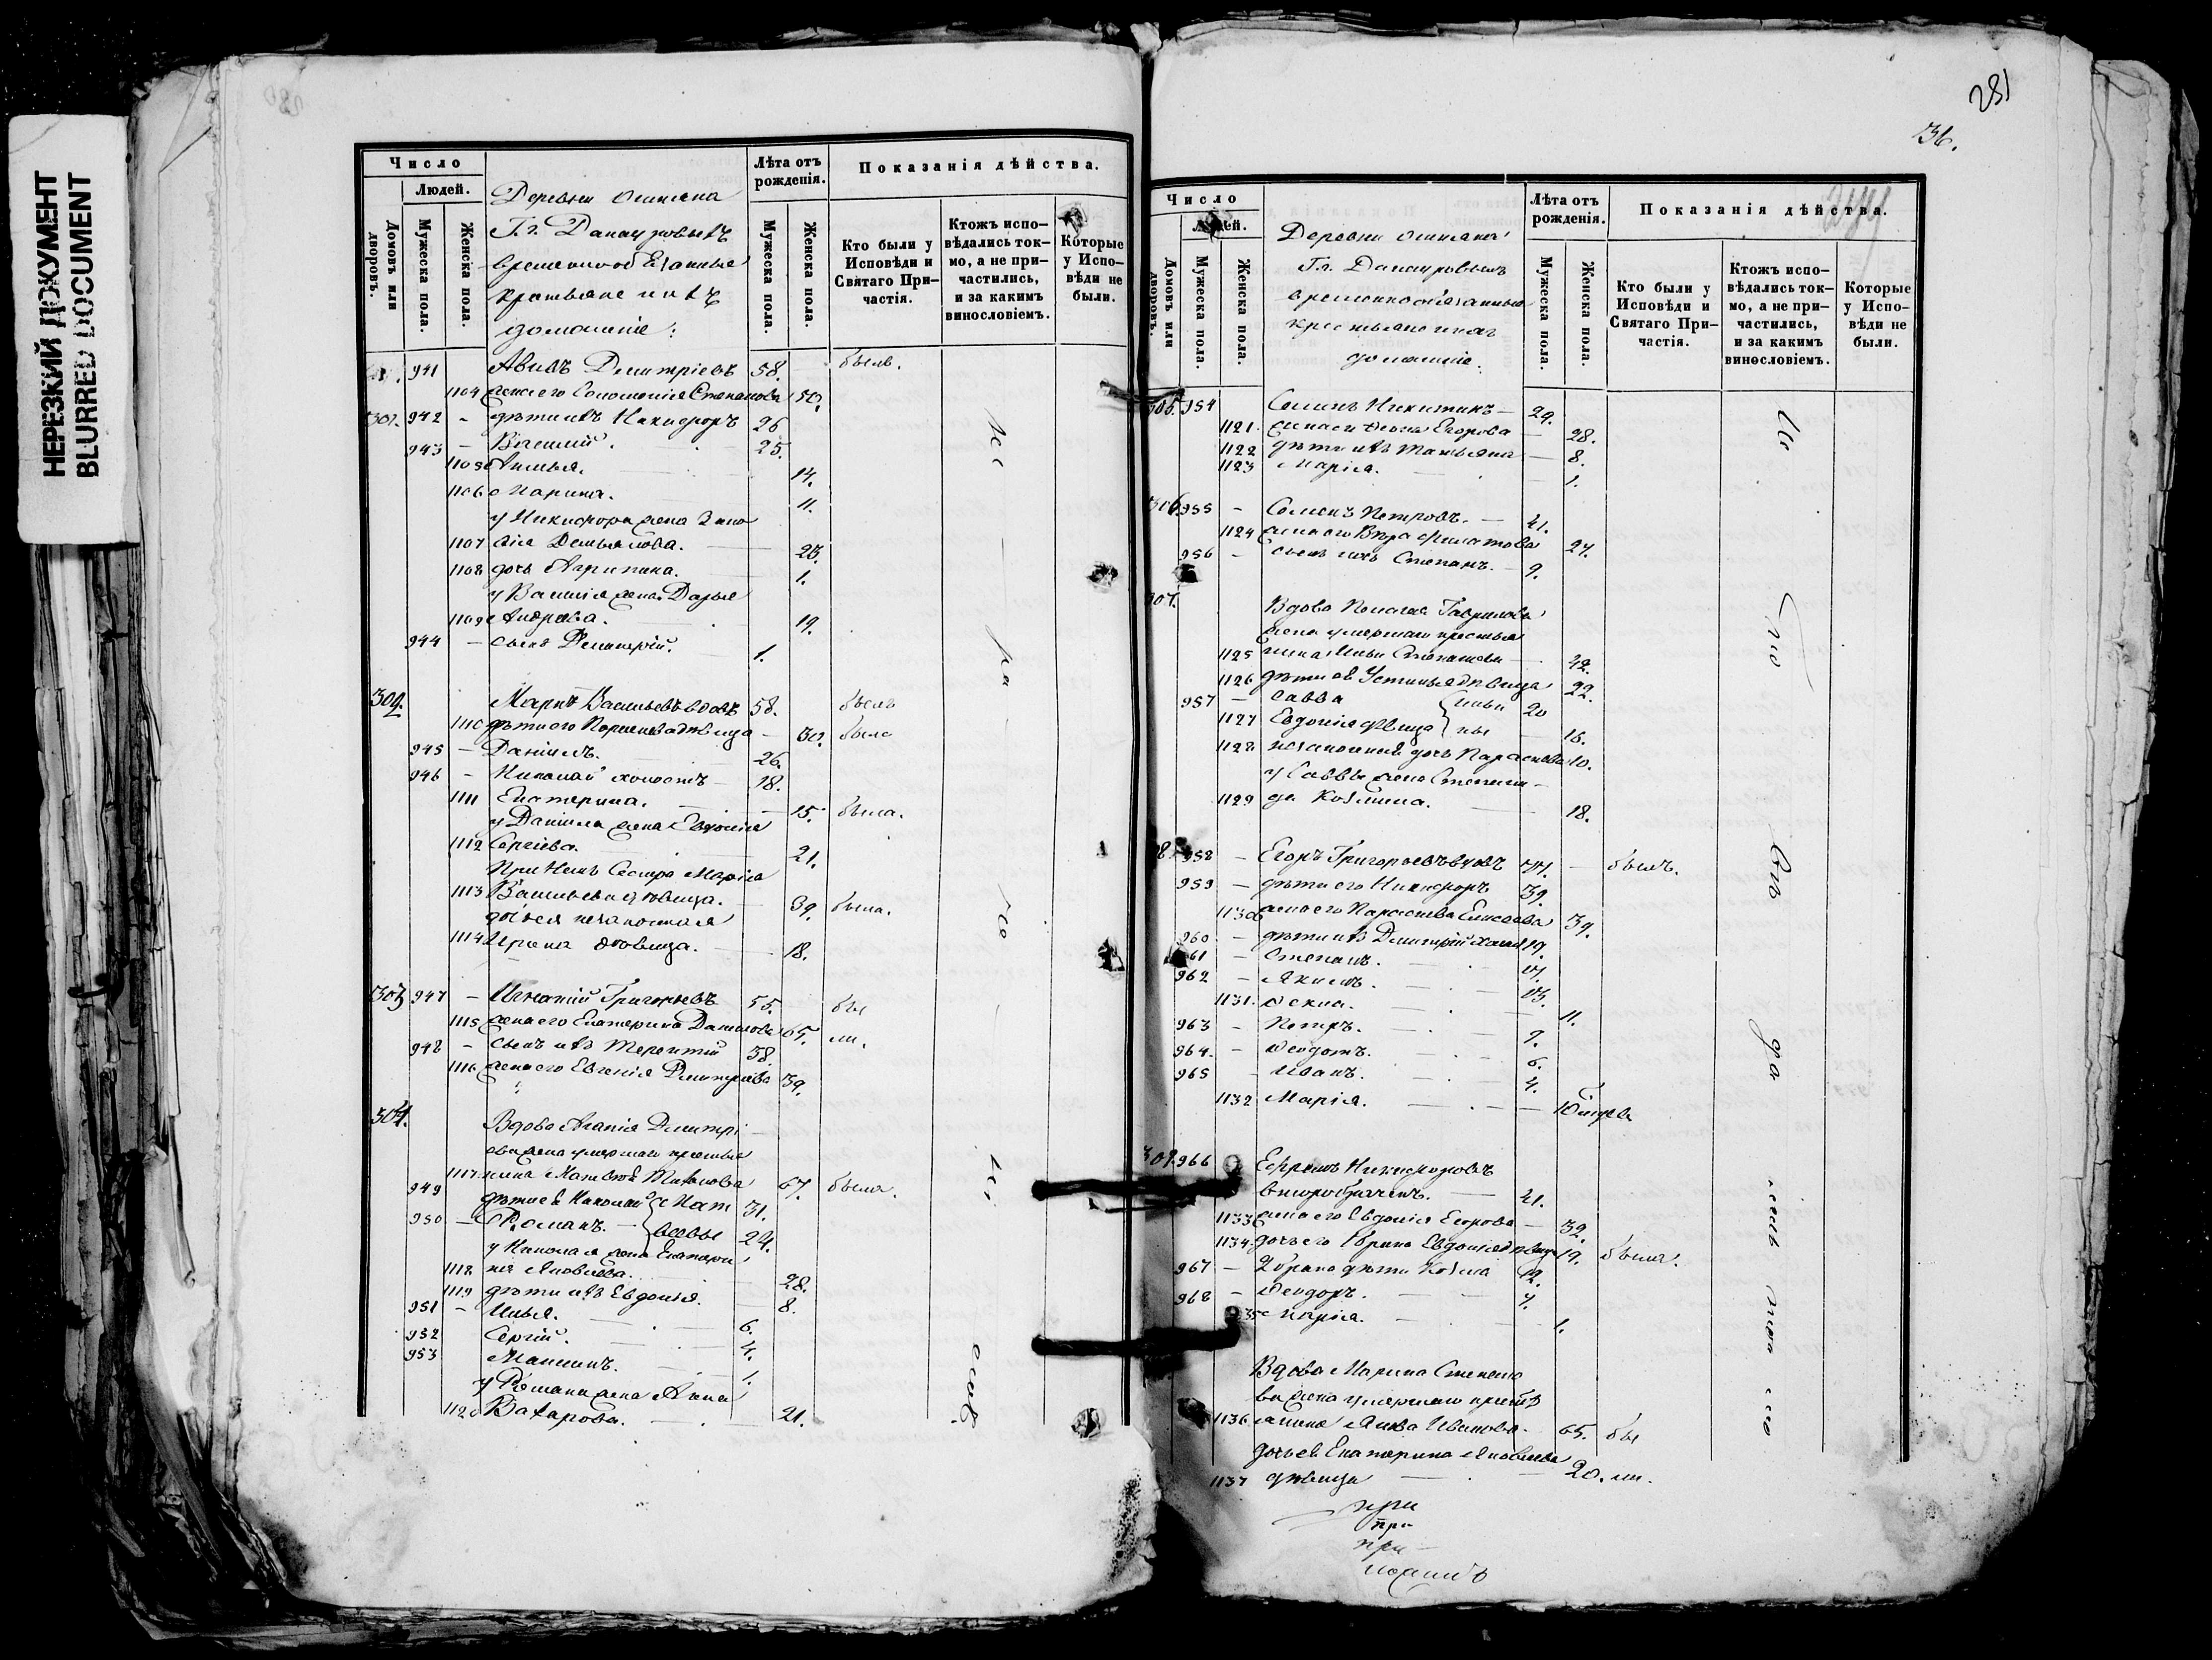 НЕРЕЗКИЙ ДОКУМЕНТ
BLURRED DOCUMENT
Число
Людей.
Домовъ или дворовъ.
Мужеска пола.
Женска пола.
Деревни
Г.г. Данауровыхъ
временнообязанные
крестьяне и ихъ
домашніе:
Лѣта отъ рожденія.
Мужеска пола.
Женска пола.
Показанія дѣйства.
Кто были у Исповѣди и Святаго Причастія.
Ктожъ исповѣдались токмо, а не причастились, и за какимъ винословіемъ.
Которые у Исповѣди не были.
941 Авивъ Дмитріевъ 58. былъ.
1104 жена его Соломонія Степанова 50.
942 - дѣти ихъ Никифоръ 26
943 - Василій. 25.
1105 14.
1106 Марина. 11.
у Никифора жена Зино
1107 вія Демьянова. 23.
1108 дочь Агрипина. 1.
у Василія жена Дарья
1109 Андреева. 19.
944 - сынъ Димитрій. 1.
302. Маркъ Васильевъ вдовъ 58. былъ
1110 дѣти его Парасковья дѣвица - 30. была
945 - Даніилъ. 26.
946 - Николай холостъ - 18.
1111 Екатерина. 15. была.
у Даніила жена Евдокія
1112 Сергіева. 21.
При немъ сестра Марія
1113 Васильева дѣвица. 39. была.
дочь ея незаконная
1114 Ирина дѣвица. 18.
303 947 - Игнатій Григорьевъ 55. бы
1115 жена его Екатерина Данилова 65. ли.
948 - сынъ ихъ Терентій 38
1116 жена его Евгенія Дмитріева 39.
304. Вдова Агапія Дмитрі
ева жена умершаго крестья
1117 нина Матвѣя 67. была.
949 дѣти ея Николай Мат 31.
950 - Романъ. - вѣевы 24.
у Николая жена Екатери
1118 на Яковлева. 28.
1119 дѣти ихъ Евдокія. 8.
951 - Илья. 6.
952 Сергій. 4.
953 Максимъ. 1.
у Романа жена Анна
1120 Захарова. 21.
281
36.
Число
Людей.
Домовъ или дворовъ.
Мужеска пола.
Женска пола.
Деревни
Г.г. Данауровыхъ
временнообязанные
крестьяне и ихъ
домашніе.
Лѣта отъ рожденія.
Мужеска пола.
Женска пола.
Показанія дѣйства.
Кто были у Исповѣди и Святаго Причастія.
Ктожъ исповѣдались токмо, а не причастились, и за какимъ винословіемъ.
Которые у Исповѣди не были.
305. 954 Никитинъ - 29.
1121. жена его Егорова - 28.
1122 дѣти ихъ Татьяна - 8.
1123 Марія. 1.
306 955 - Семенъ Петровъ. - 41.
1124 жена его Вѣра Филатова 27.
956 - сынъ ихъ Степанъ. - 9.
307. Вдова Пелагія Гаврилова
жена умершаго крестья
1125 нина Ильи Степанова - 42.
1126 дѣти ея Устинья дѣвица 22.
957 - Савва Ильи 20
1127 Евдокія дѣвица ны - 16.
1128 незаконная дочь Парасковья 10.
у Саввы жена Степани
1129 да Козмина. 18.
958 - Егоръ Григорьевъ вдовъ - былъ.
959 - дѣти его Никифоръ 39.
1130 жена его Парасковья Елисеева 39.
960 - дѣти ихъ Димитрій холостъ 19.
961 - Степанъ.
962 - Якимъ. 13.
1131. Фекла. 11.
963 - Петръ. 9.
964. - Феодотъ. 6.
965 - Иванъ. 4.
1132 Марія. -
309. 966 Ефремъ Никифоровъ
второбрачный. - 41.
1133 жена его Евдокія Егорова - 39.
1134. дочь его 1 брака Евдокія дѣвица 19. была.
967 - 2 брака дѣти Козма 12.
968 - Феодоръ. 7.
1135 Марія. 1.
Вдова Марина Степано
ва жена умершаго крестья
1136. нина Якова Иванова - 65. бы
дочь ея Екатерина Яковлева
1137 дѣвица - 20. ли.
при
при
при